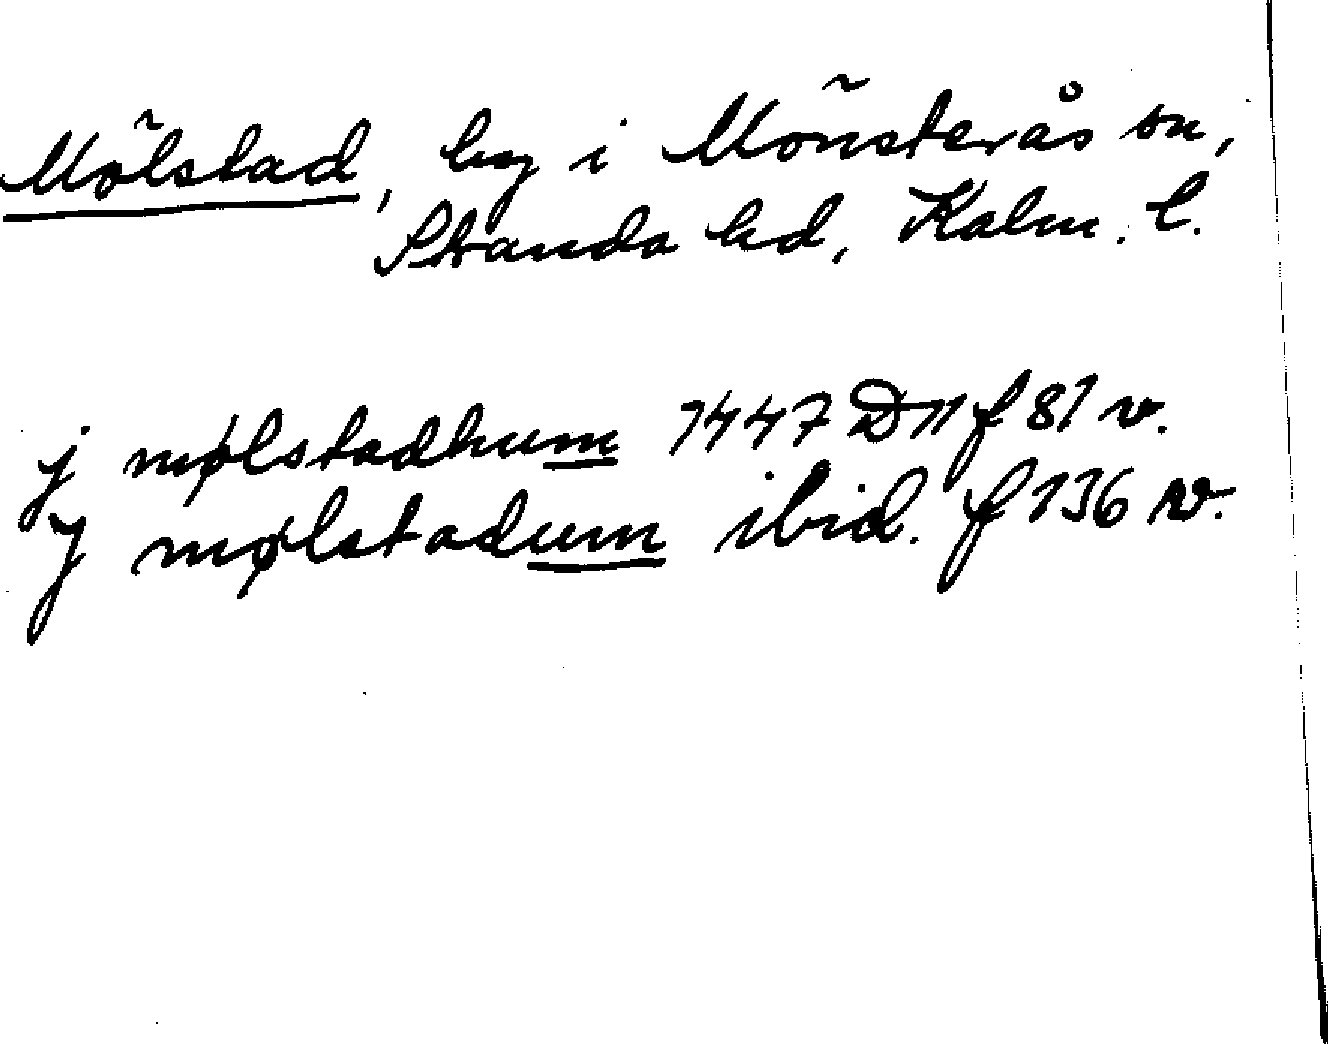 Mölstad, by i Mönsterås sn,
Stranda hd, Kalm. l.
j mølstadhum 1447 D 11 f 81 v.
J mølstadum ibid. f 136 rv.